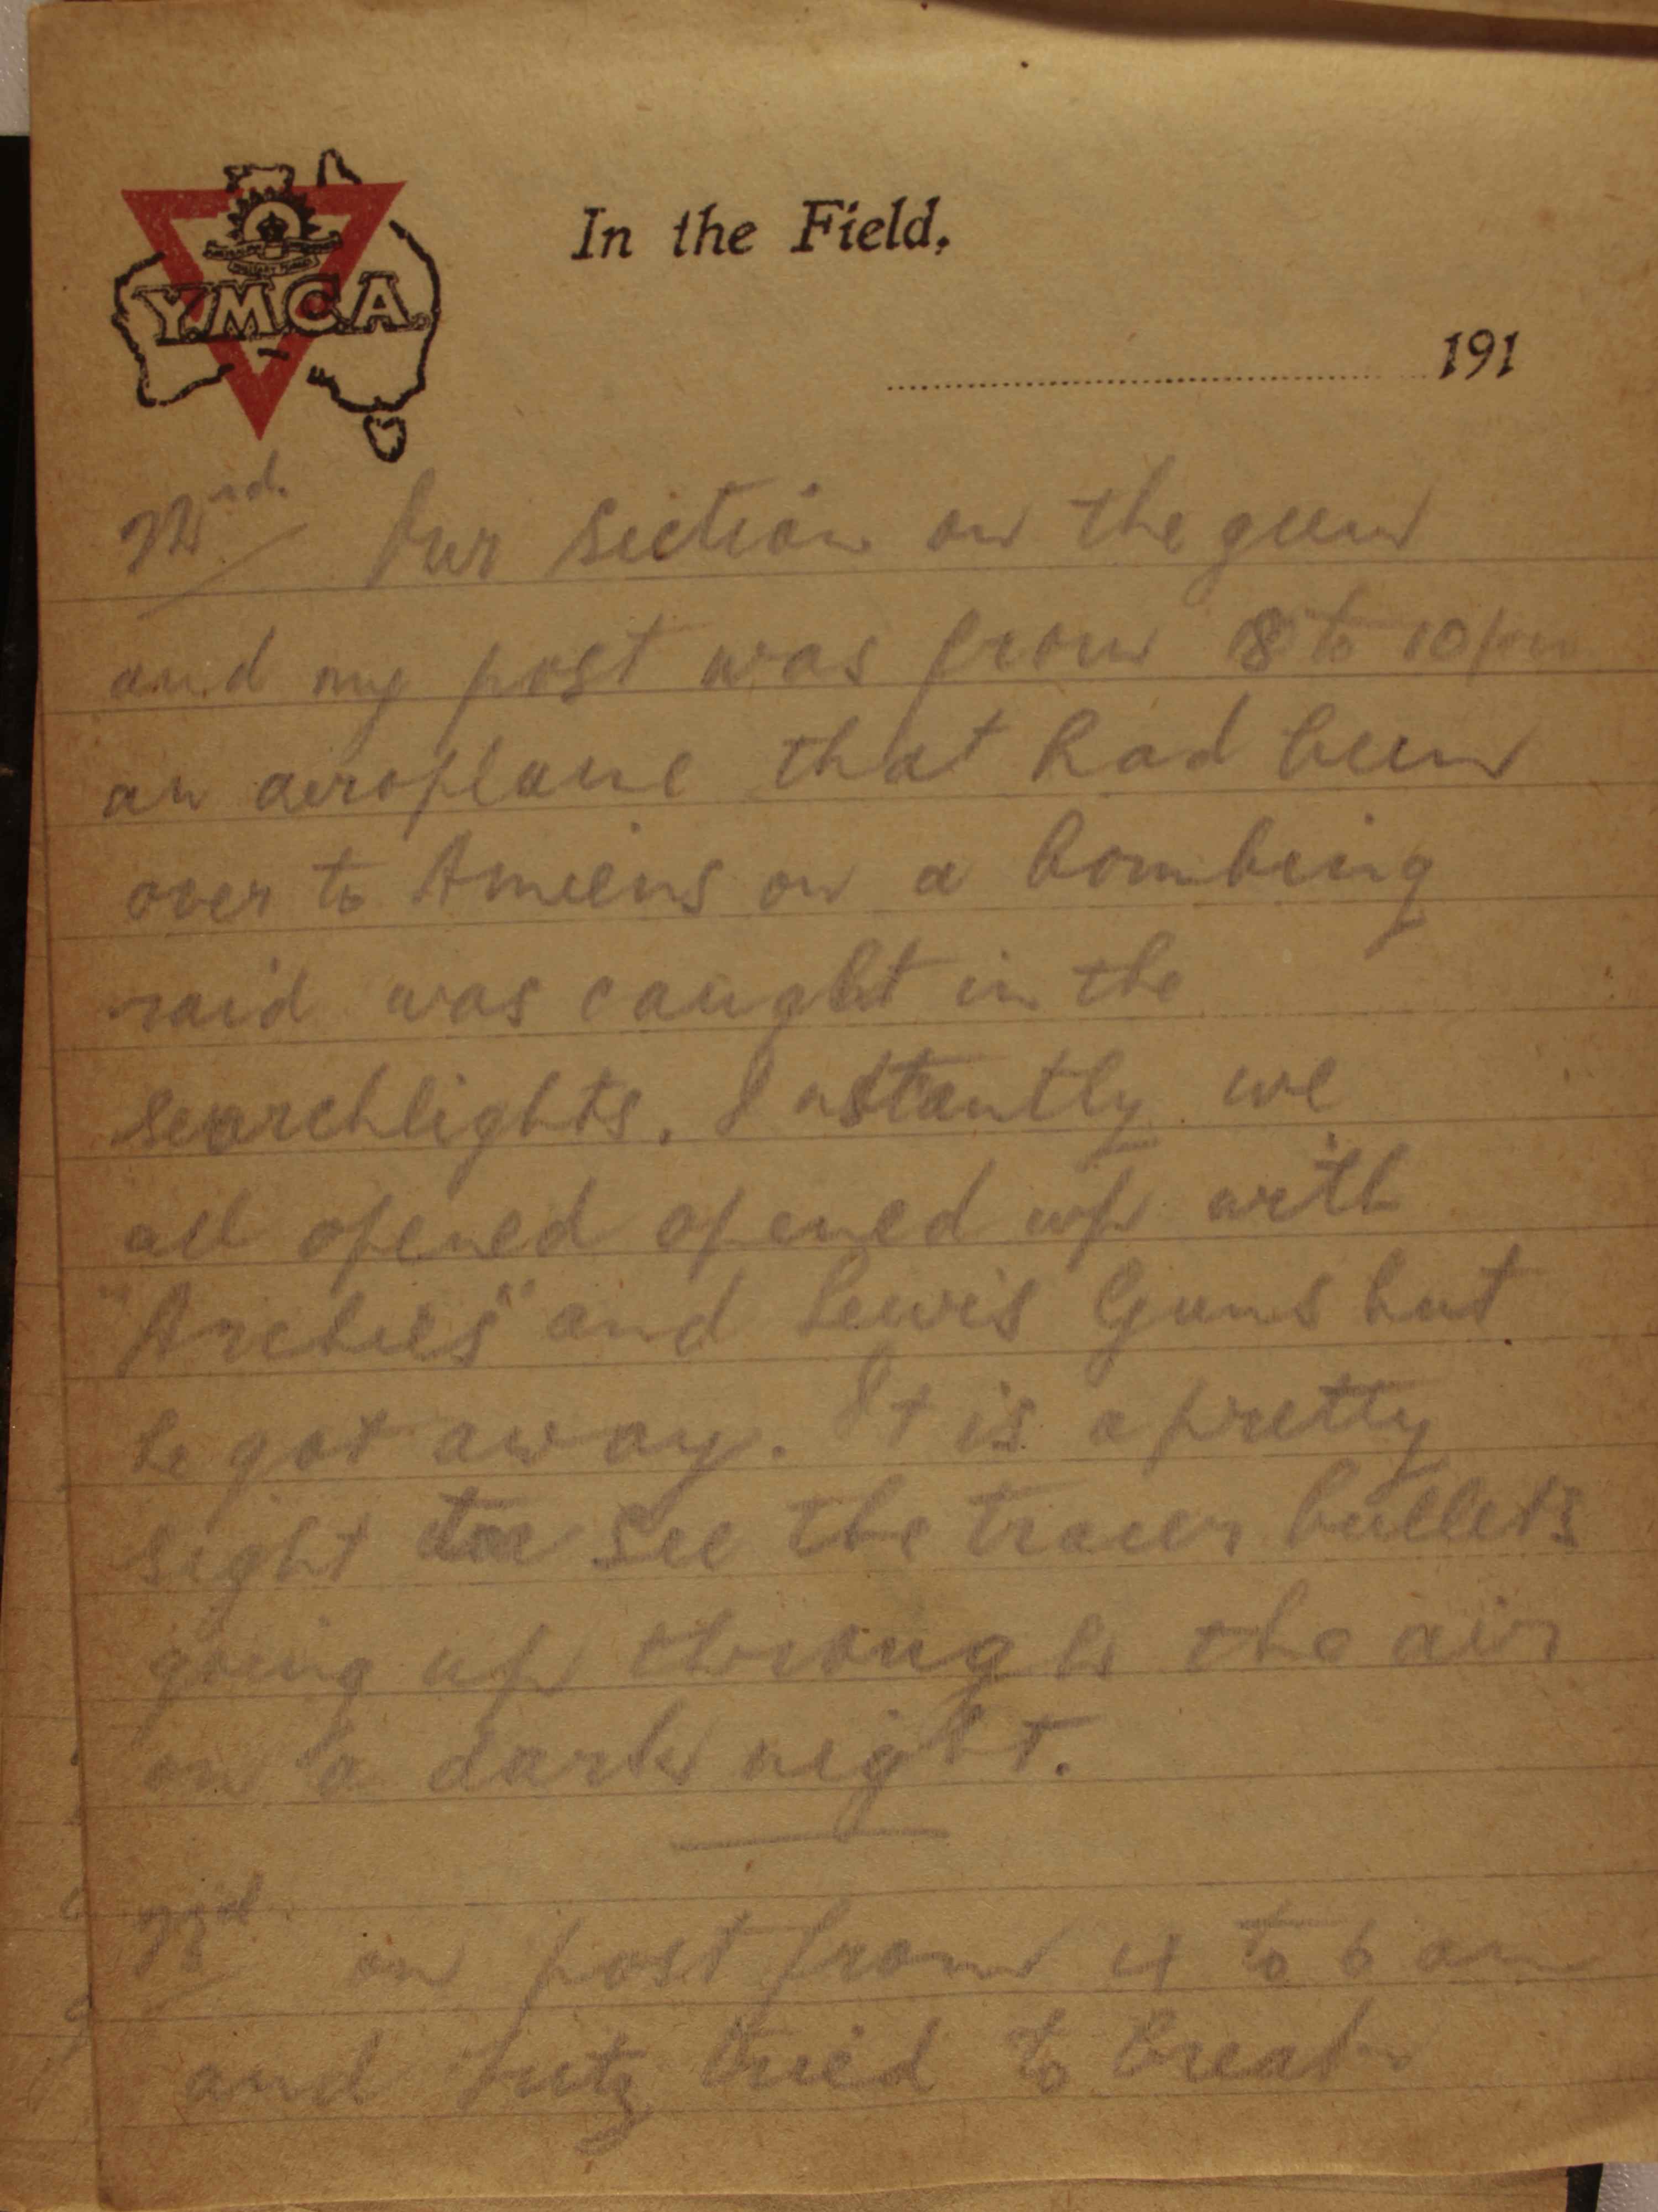 Y.M.C.A.
In the Field,
191
22nd. Our section on the gun
and my post was from 8 to 10 pm
an aeroplane that had been
over to Amiens on a bombing
raid was caught in the
searchlights. Instantly we
all opened opened up with
"Archies" and Lewis Guns but
he got away. It is a pretty
sight to see the tracer bullets
going up through the air
on a dark night.
23rd on post from 4 to 6 am
and Fritz tried to break